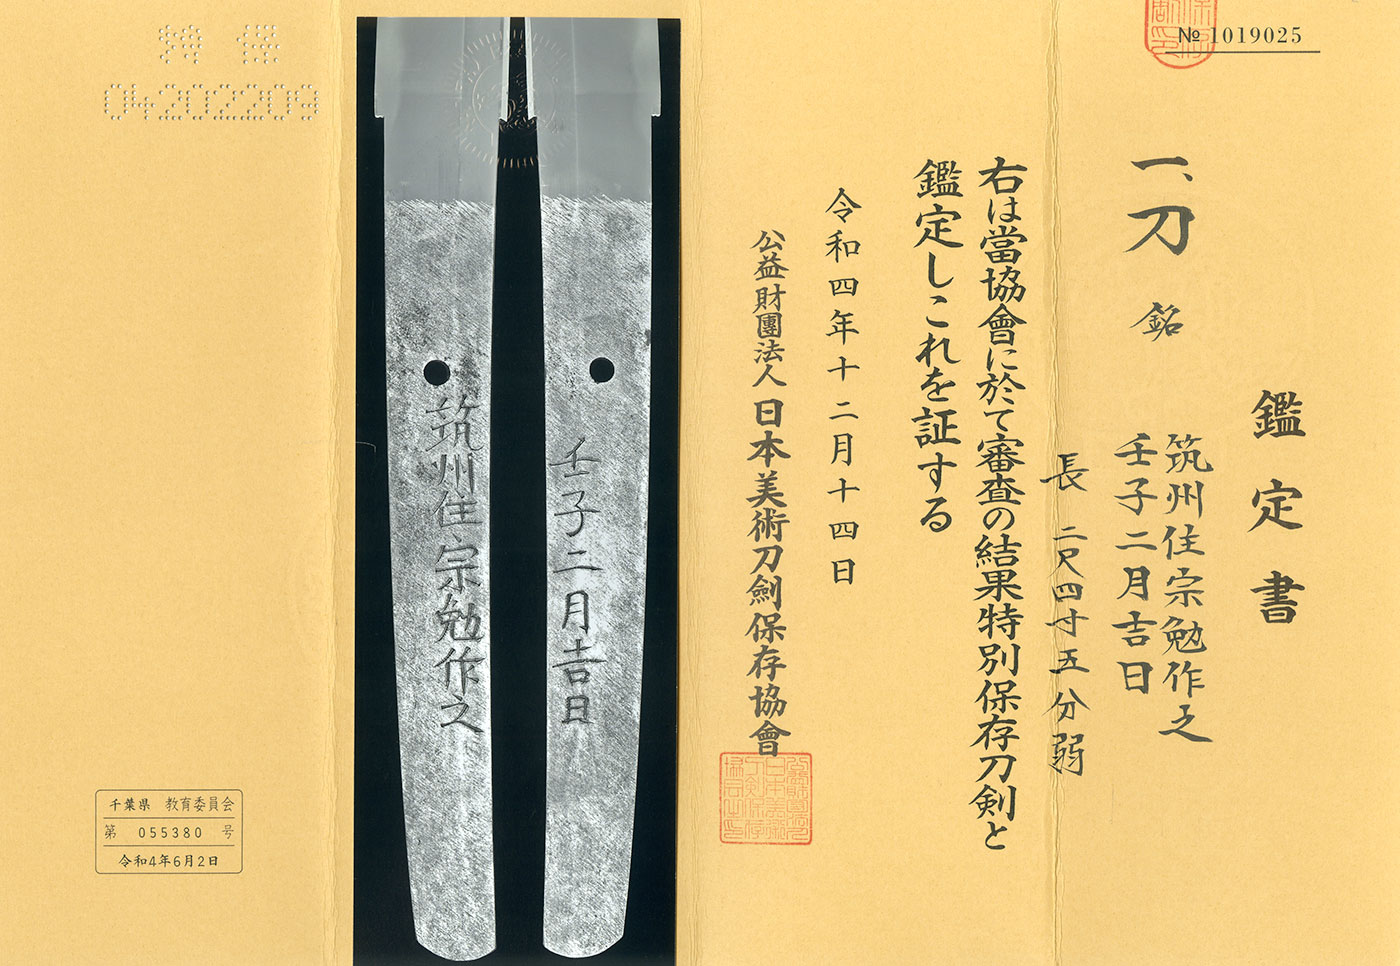 № 1019025
鑑定書
一、刀 銘 筑州住宗勉作之
壬子二月吉日
長 二尺四寸五分弱
右は當協會に於て審査の結果特別保存刀剣と
鑑定しこれを証する
令和四年十二月十四日
公益財團法人日本美術刀劍保存協會
壬子二月吉日
筑州住宗勉作之
04202209
千葉県 教育委員会
第 055380 号
令和4年6月2日